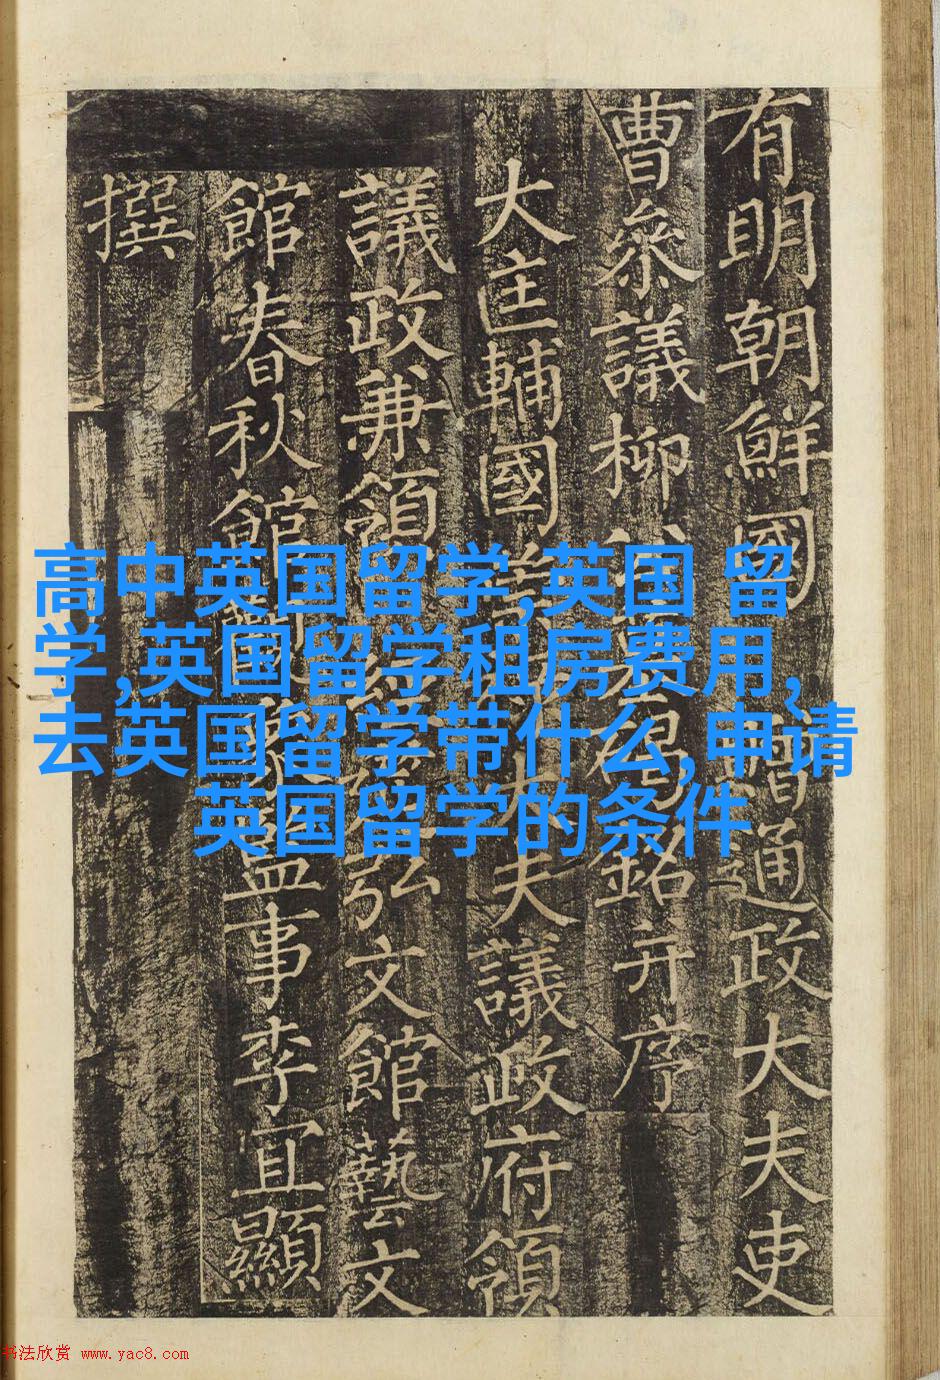 有明朝鮮國 贈通政大夫吏
曹叅議柳公墓碣銘并序
大匡輔國崇祿大夫議政府領
議政兼領經筵弘文館藝文
館春秋館觀象監事李宜顯
撰
高中英国留学,英国 留
学,英国留学租房费用,
去英国留学带什么,申请
英国留学的条件
书法欣赏 www.yac8.com